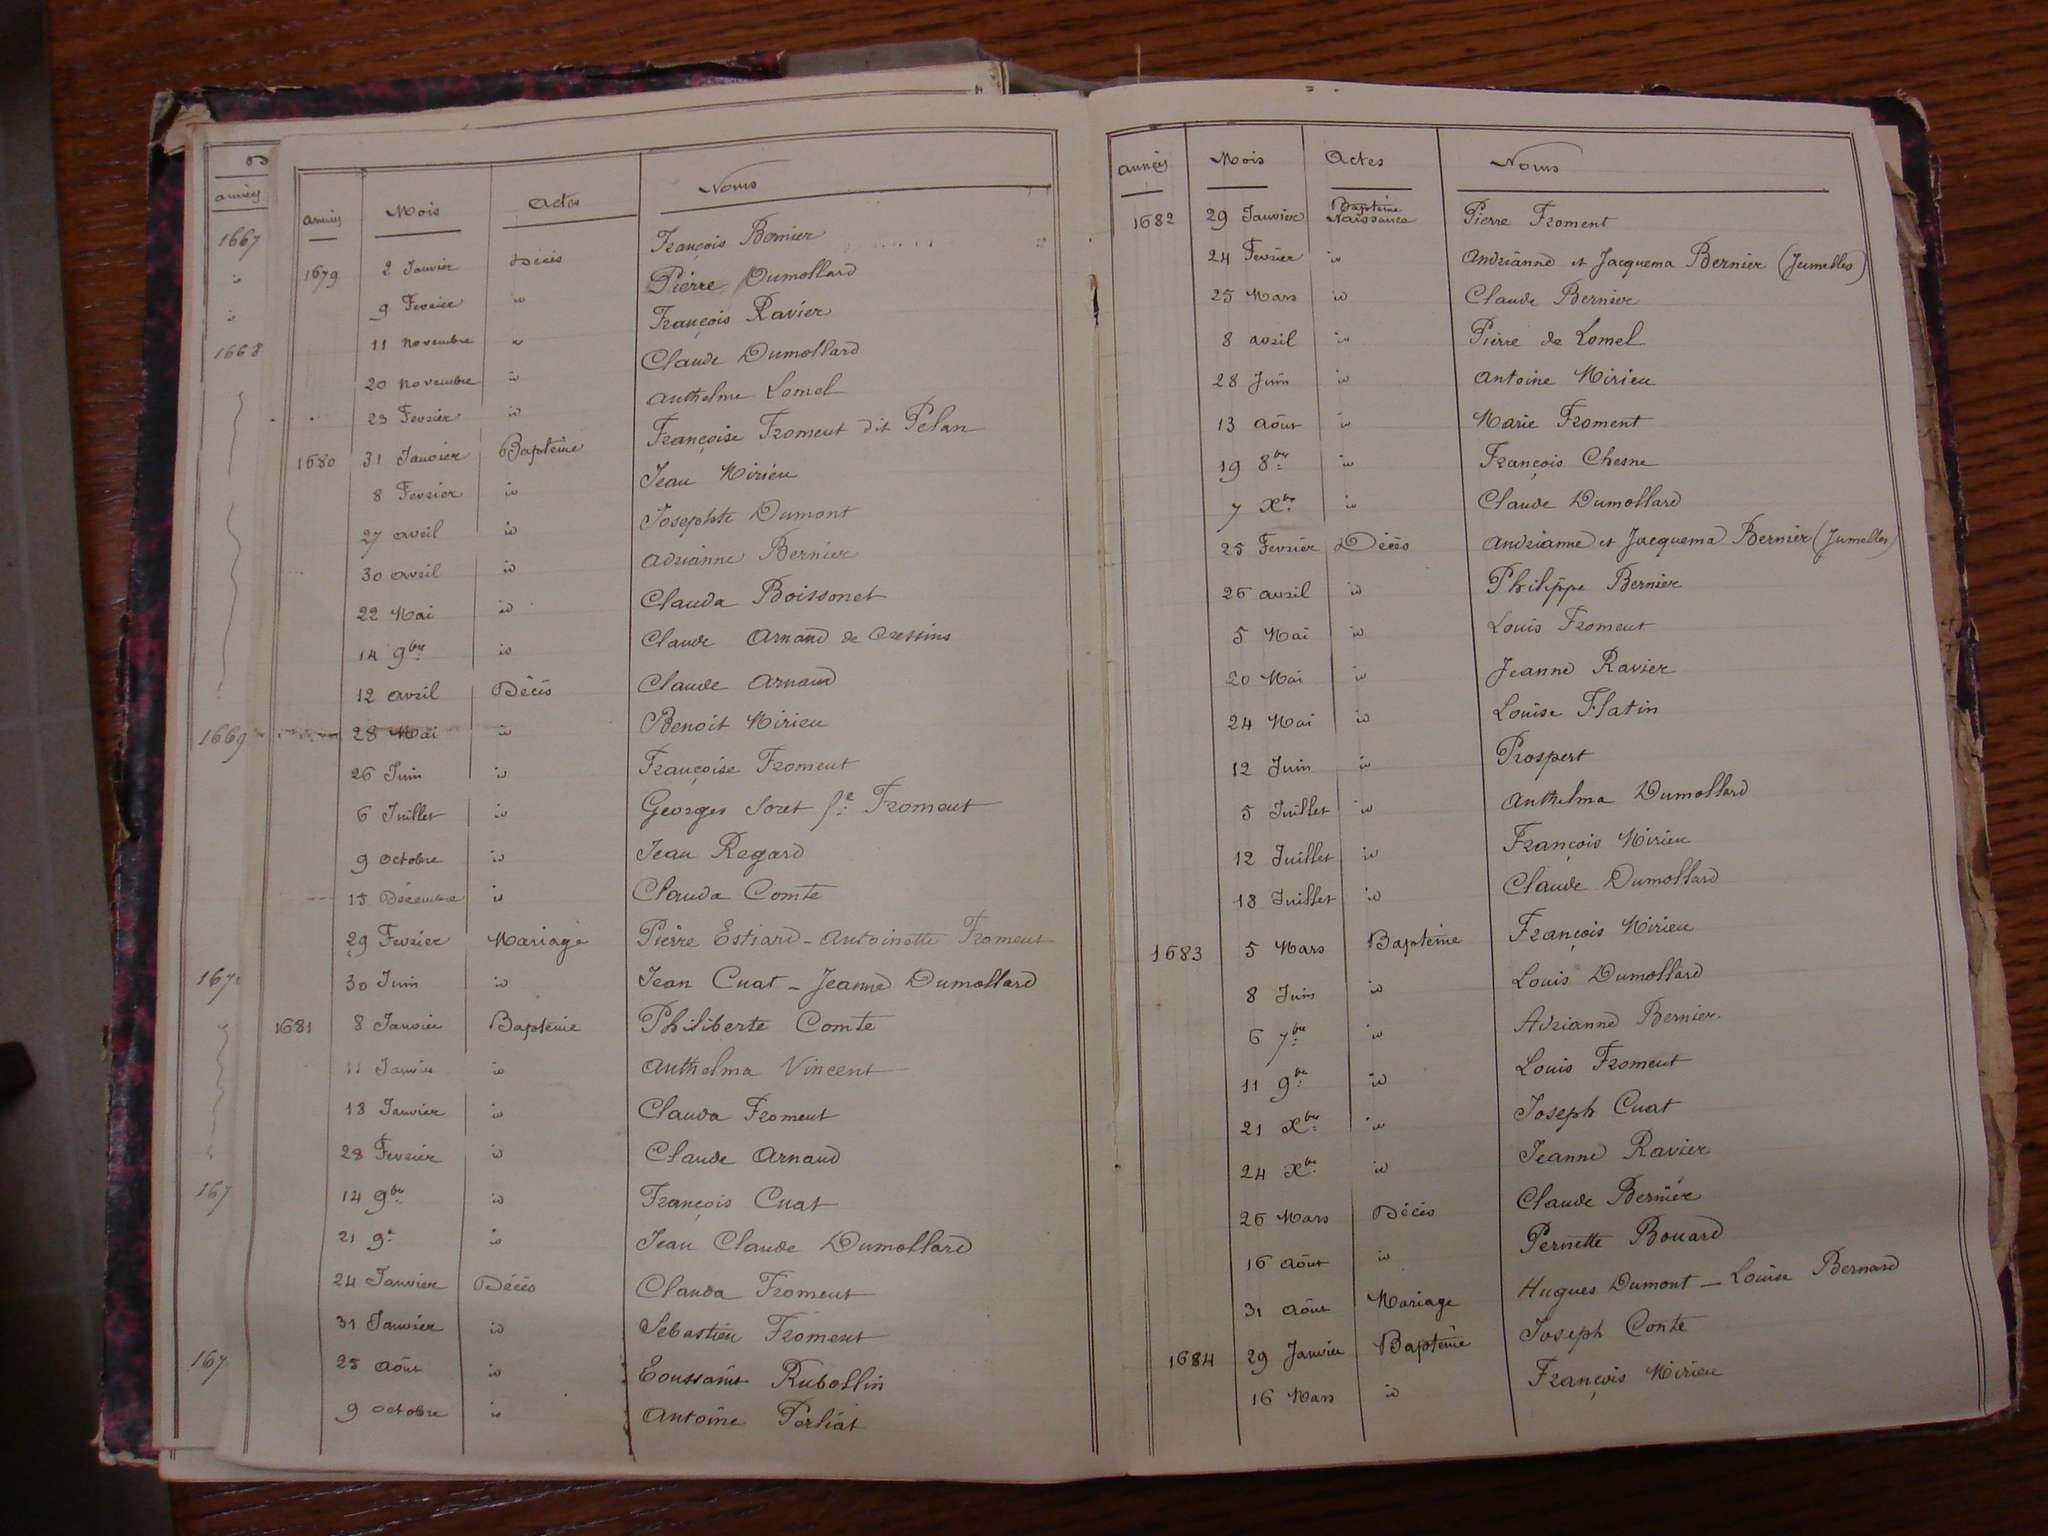 années
1667
id
id
1668
1669
années Mois Actes Noms
1679 2 Janvier Décès François Bernier
9 Fevrier id Pierre Dumollard
11 Novembre id François Ravier
20 Novembre id Claude Dumollard
23 Fevrier id Anthelme Lomel
1680 31 Janvier Baptême Françoise Froment dit Pelan
8 Fevrier id Jean Mirieu
27 avril id Josephte Dumont
30 avril id Adrianne Bernier
22 Mai id Clauda Boissonet
14 9bre id Claude Arnaud de Cressins
12 avril Décès Claude Arnaud
28 Mai id Benoit Mirieu
26 Juin id Françoise Froment
6 Juillet id Georges Soret fe Froment
9 Octobre id Jean Regard
15 Décembre id Clauda Comte
29 Fevrier Mariage Pierre Estiard - Antoinette Froment
30 Juin id Jean Cuat - Jeanne Dumollard
1681 8 Janvier Baptême Philiberte Comte
11 Janvier id Anthelma Vincent
18 Janvier id Clauda Froment
28 Fevrier id Claude Arnaud
14 9bre id François Cuat
21 9e id Jean Claude Dumollard
24 Janvier Décès Clauda Froment
31 Janvier id Sebastien Froment
25 Août id Toussaint Rubollin
9 octobre id Antoine Perliat
années Mois Actes Noms
1682 29 Janvier Baptême Naissance Pierre Froment
24 Fevrier id Andrianne et Jacquema Bernier (Jumelles)
25 Mars id Claude Bernier
8 avril id Pierre de Lomel
28 Juin id Antoine Mirieu
13 Août id Marie Froment
19 8bre id François Chesne
7 Xbre id Claude Dumollard
25 Fevrier Décès Andrianne et Jacquema Bernier (Jumelles)
26 avril id Philippe Bernier
5 Mai id Louis Froment
20 Mai id Jeanne Ravier
24 Mai id Louise Flatin
12 Juin id Prospert
5 Juillet id Anthelma Dumollard
12 Juillet id François Mirieu
18 Juillet id Claude Dumollard
1683 5 Mars Baptême François Mirieu
8 Juin id Louis Dumollard
6 7bre id Adrianne Bernier
11 9bre id Louis Froment
21 Xbre id Joseph Cuat
24 Xbre id Jeanne Ravier
26 Mars Décès Claude Bernier
16 Août id Pernette Bouard
31 Août Mariage Hugues Dumont - Louise Bernard
1684 29 Janvier Baptême Joseph Conte
16 Mars id François Mirieu